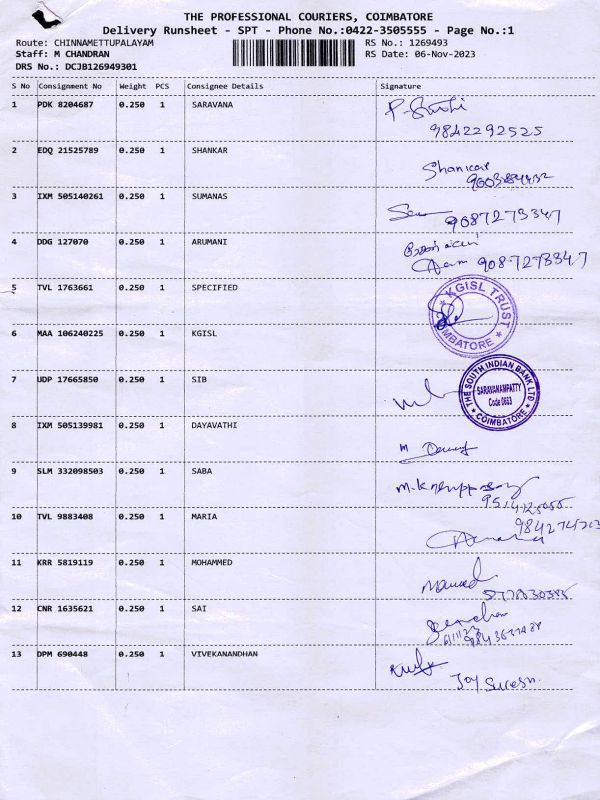 THE PROFESSIONAL COURIERS, COIMBATORE
Delivery Runsheet - SPT - Phone No.:0422-3505555 - Page No.:1
Route: CHINNAMETTUPALAYAM RS No.: 1269493
Staff: M CHANDRAN RS Date: 06-Nov-2023
DRS No.: DCJB126949301
S No Consignment No Weight PCS Consignee Details Signature
1 PDK 8204687 0.250 1 SARAVANA
9842292525
2 EDQ 21525789 0.250 1 SHANKAR
Shankar
3 IXM 505140261 0.250 1 SUMANAS
9087273347
4 DDG 127070 0.250 1 ARUMANI
9087273347
5 TVL 1763661 0.250 1 SPECIFIED
KGISL TRUST
COIMBATORE
6 MAA 106240225 0.250 1 KGISL
7 UDP 17665850 0.250 1 SIB
THE SOUTH INDIAN BANK LTD
SARAVANAMPATTY
Code 0663
COIMBATORE
8 IXM 505139981 0.250 1 DAYAVATHI
9 SLM 332098503 0.250 1 SABA
10 TVL 9883408 0.250 1 MARIA
11 KRR 5819119 0.250 1 MOHAMMED
12 CNR 1635621 0.250 1 SAI
13 DPM 690448 0.250 1 VIVEKANANDHAN
Joy Suresh